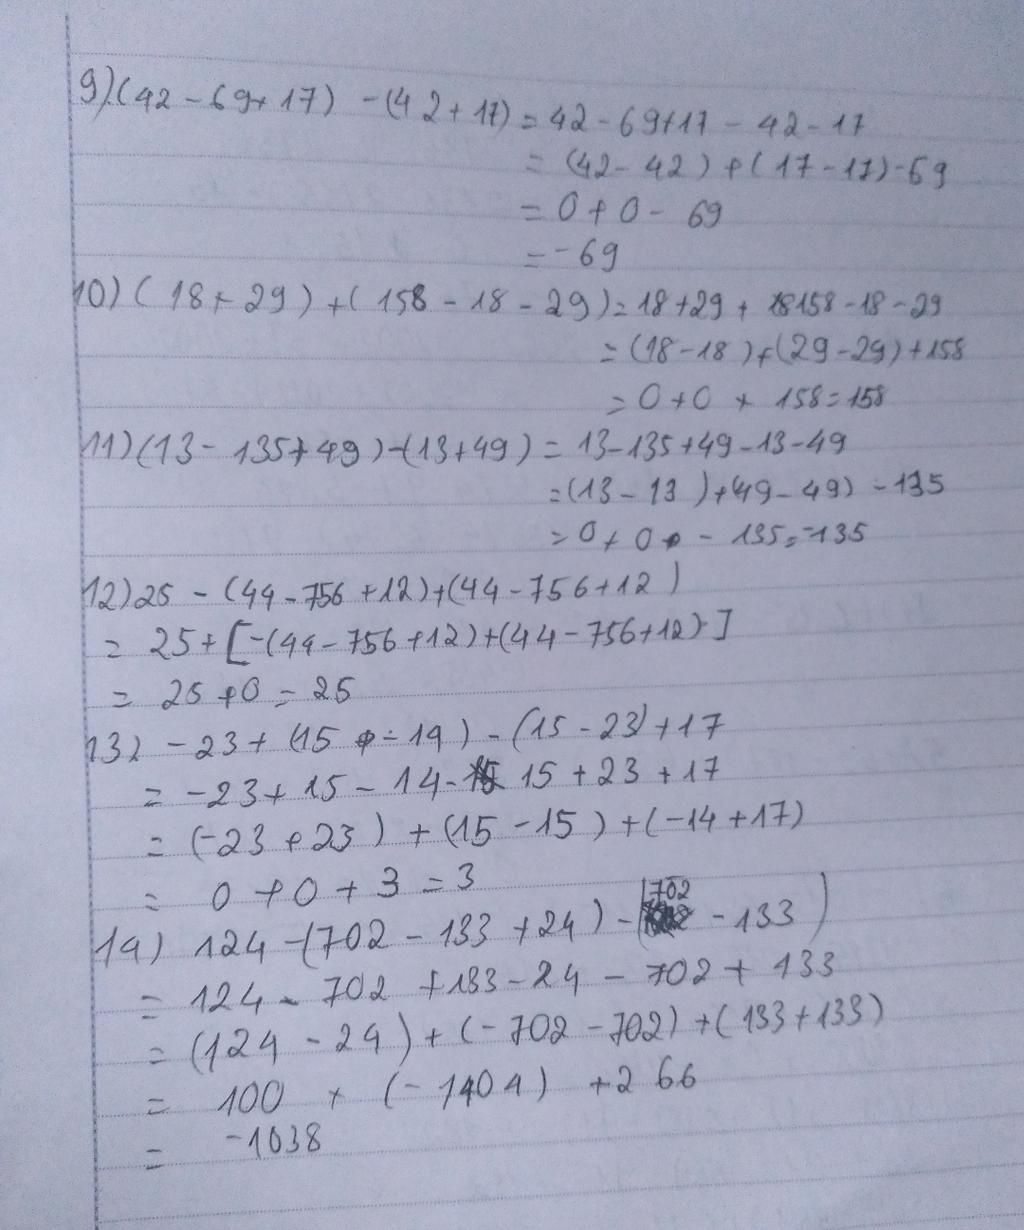 9) (42 - 69 + 17) - (42 + 17) = 42 - 69 + 17 - 42 - 17
= (42 - 42) + (17 - 17) - 69
= 0 + 0 - 69
= - 69
10) (18 + 29) + (158 - 18 - 29) = 18 + 29 + 158 - 18 - 29
= (18 - 18) + (29 - 29) + 158
= 0 + 0 + 158 = 158
11) (13 - 135 + 49) - (13 + 49) = 13 - 135 + 49 - 13 - 49
= (13 - 13) + 49 - 49) - 135
= 0 + 0 - 135 = -135
12) 25 - (44 - 756 + 12) + (44 - 756 + 12)
= 25 + [-(44 - 756 + 12) + (44 - 756 + 12)]
= 25 + 0 = 25
13) - 23 + (15 - 14) - (15 - 23) + 17
= - 23 + 15 - 14 - 15 + 23 + 17
= (-23 + 23) + (15 - 15) + (-14 + 17)
= 0 + 0 + 3 = 3
14) 124 - (702 - 133 + 24) - (702 - 133)
= 124 - 702 + 133 - 24 - 702 + 133
= (124 - 24) + (- 702 - 702) + (133 + 133)
= 100 + (- 1404) + 266
= -1038